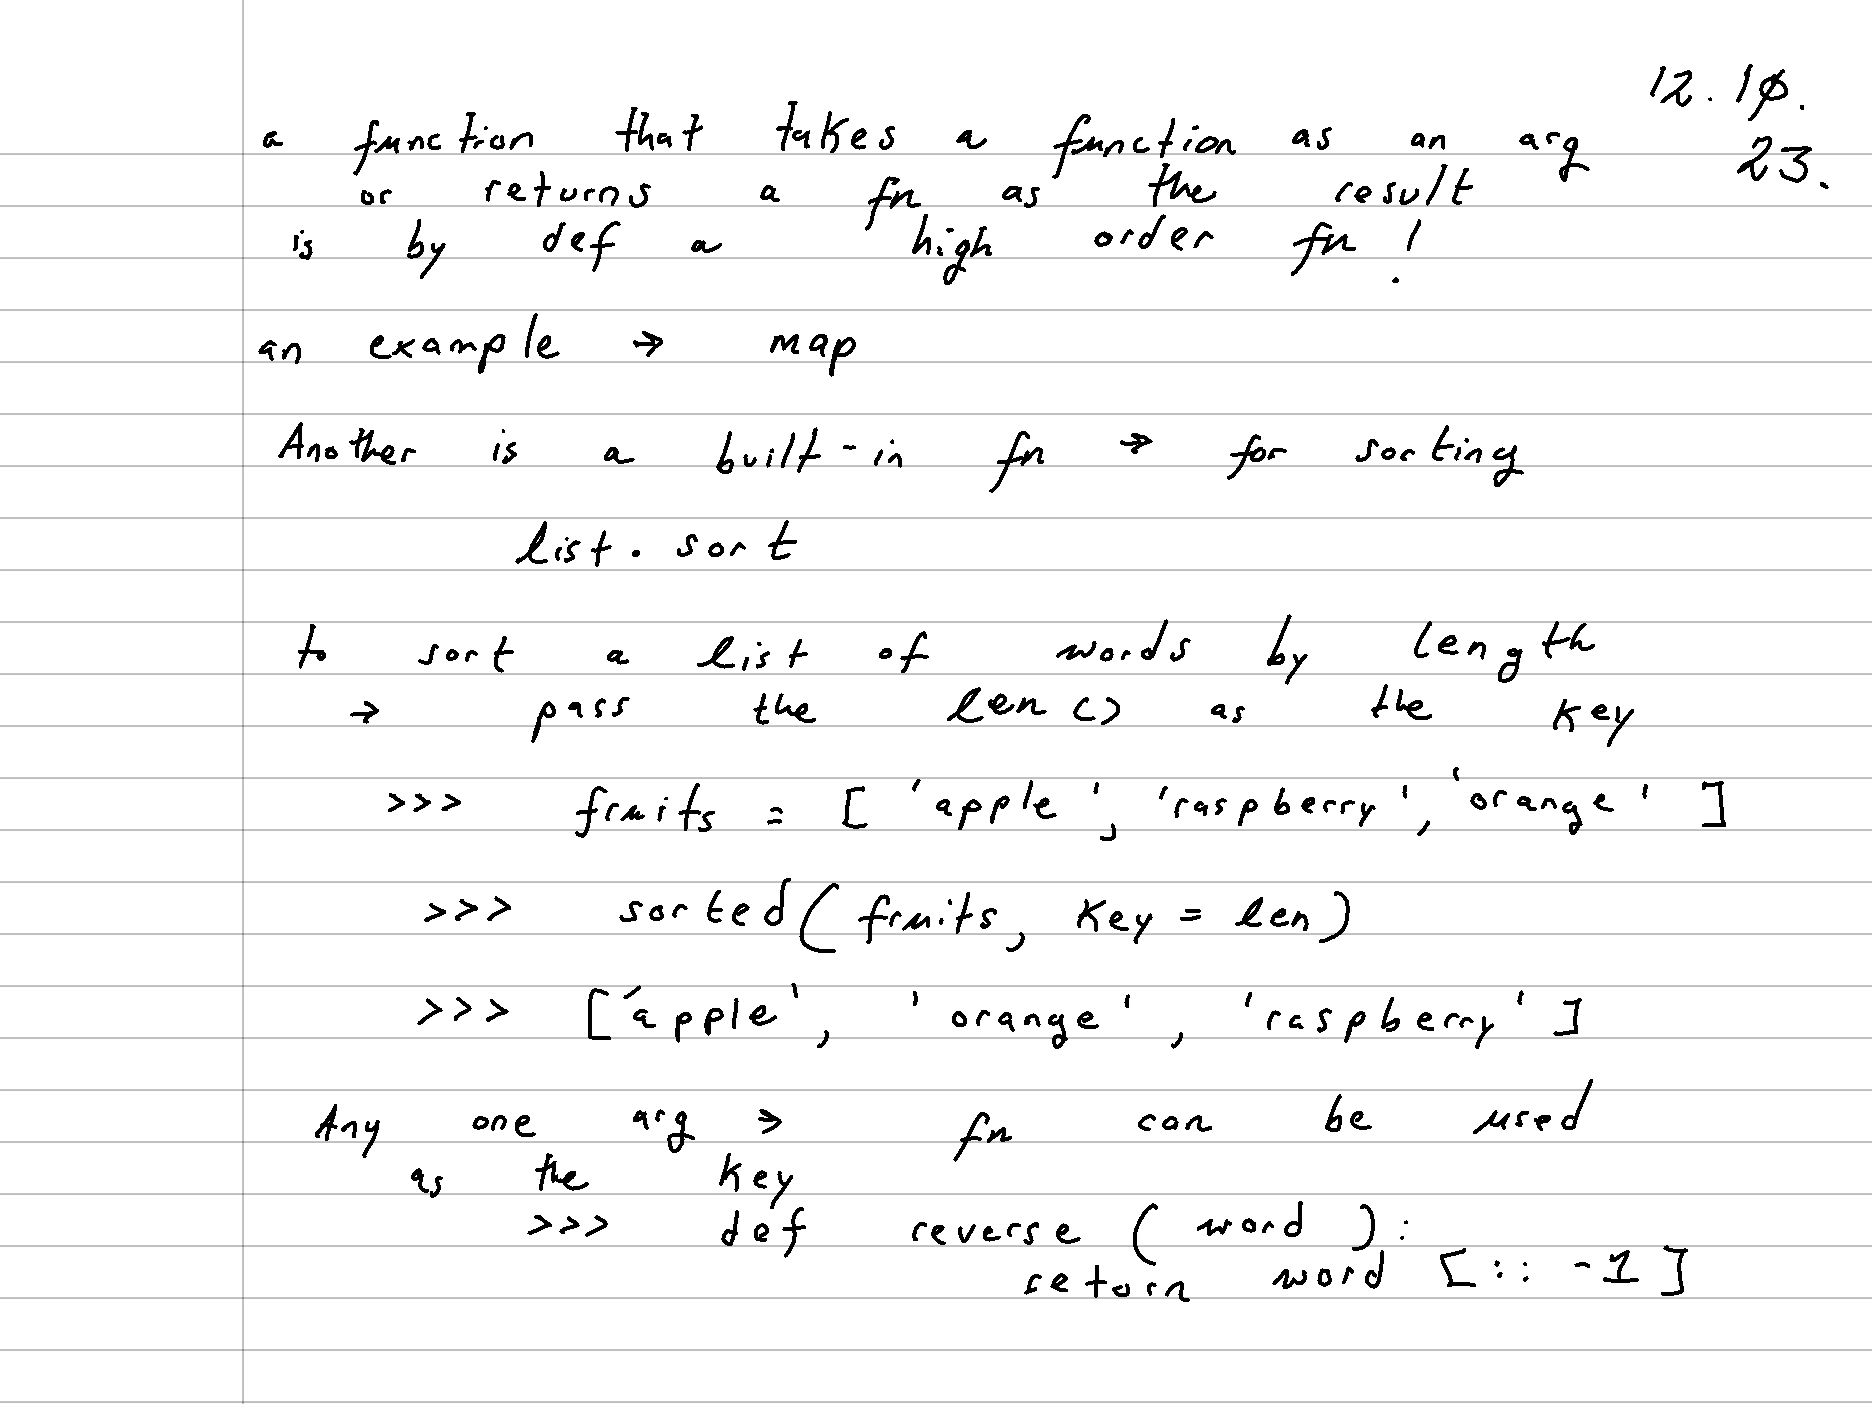 12.10.
23.
a function that takes a function as an arg
or returns a fn as the result
is by def a high order fn!
an example → map
Another is a built-in fn → for sorting
list.sort
to sort a list of words by length
→ pass the len() as the key
>>> fruits = ['apple', 'raspberry', 'orange']
>>> sorted(fruits, key = len)
>>> ['apple', 'orange', 'raspberry']
Any one arg → fn can be used
as the key
>>> def reverse (word):
return word [:: -1]